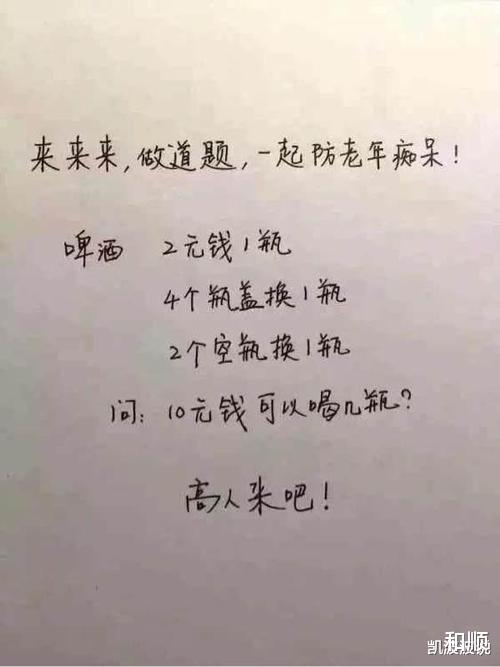 来来来,做道题,一起防老年痴呆!
啤酒 2元钱1瓶
4个瓶盖换1瓶
2个空瓶换1瓶
问:10元钱可以喝几瓶?
高人来吧!
和顺